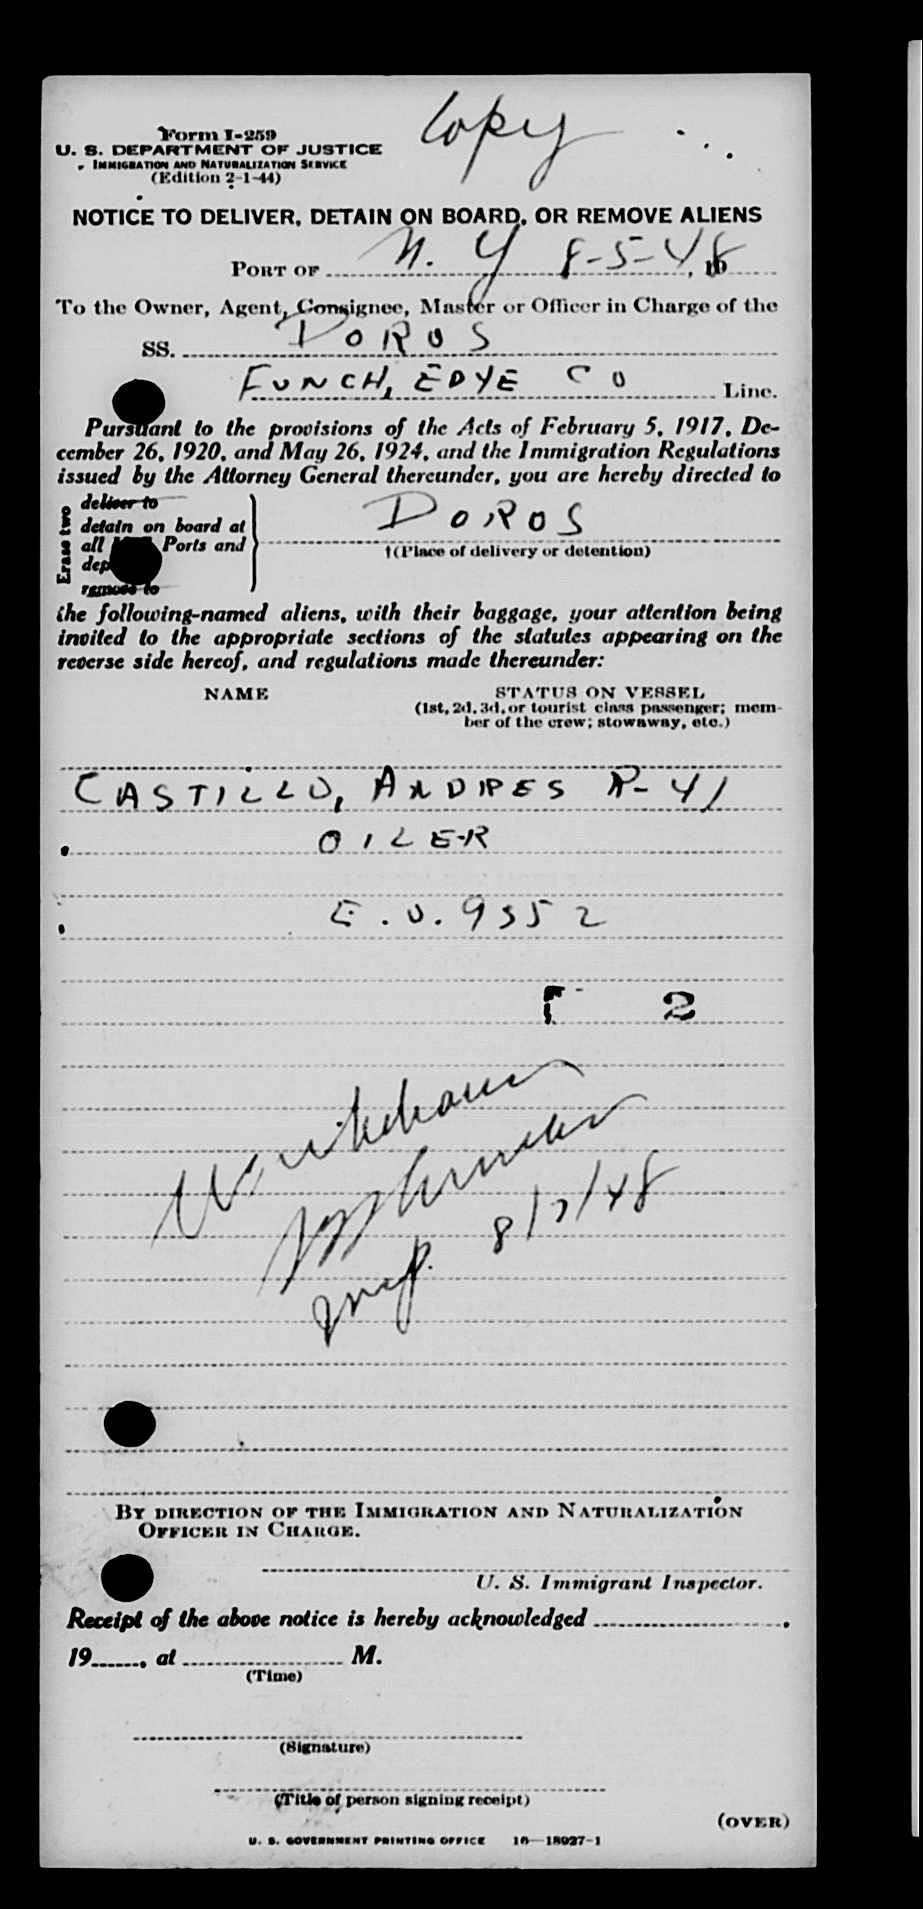 Copy
Form I-259
U. S. DEPARTMENT OF JUSTICE
IMMIGRATION AND NATURALIZATION SERVICE
(Edition 2-1-44)
NOTICE TO DELIVER, DETAIN ON BOARD, OR REMOVE ALIENS
PORT OF N. Y 8-5-48
To the Owner, Agent, Consignee, Master or Officer in Charge of the
SS. DOROS
FUNCH, EDYE CO Line.
Pursuant to the provisions of the Acts of February 5, 1917, De-
cember 26, 1920, and May 26, 1924, and the Immigration Regulations
issued by the Attorney General thereunder, you are hereby directed to
Erase two
deliver to
detain on board at
all Ports and
dep
remove to
DOROS
†(Place of delivery or detention)
the following-named aliens, with their baggage, your attention being
invited to the appropriate sections of the statutes appearing on the
reverse side hereof, and regulations made thereunder:
NAME STATUS ON VESSEL
(1st, 2d, 3d, or tourist class passenger; mem-
ber of the crew; stowaway, etc.)
CASTILLO, R-41
OILER
E.U. 9552
2
8/7/48
BY DIRECTION OF THE IMMIGRATION AND NATURALIZATION
OFFICER IN CHARGE.
U. S. Immigrant Inspector.
Receipt of the above notice is hereby acknowledged
19 , at M.
(Time)
(Signature)
(Title of person signing receipt)
(OVER)
U. S. GOVERNMENT PRINTING OFFICE 16—18027-1